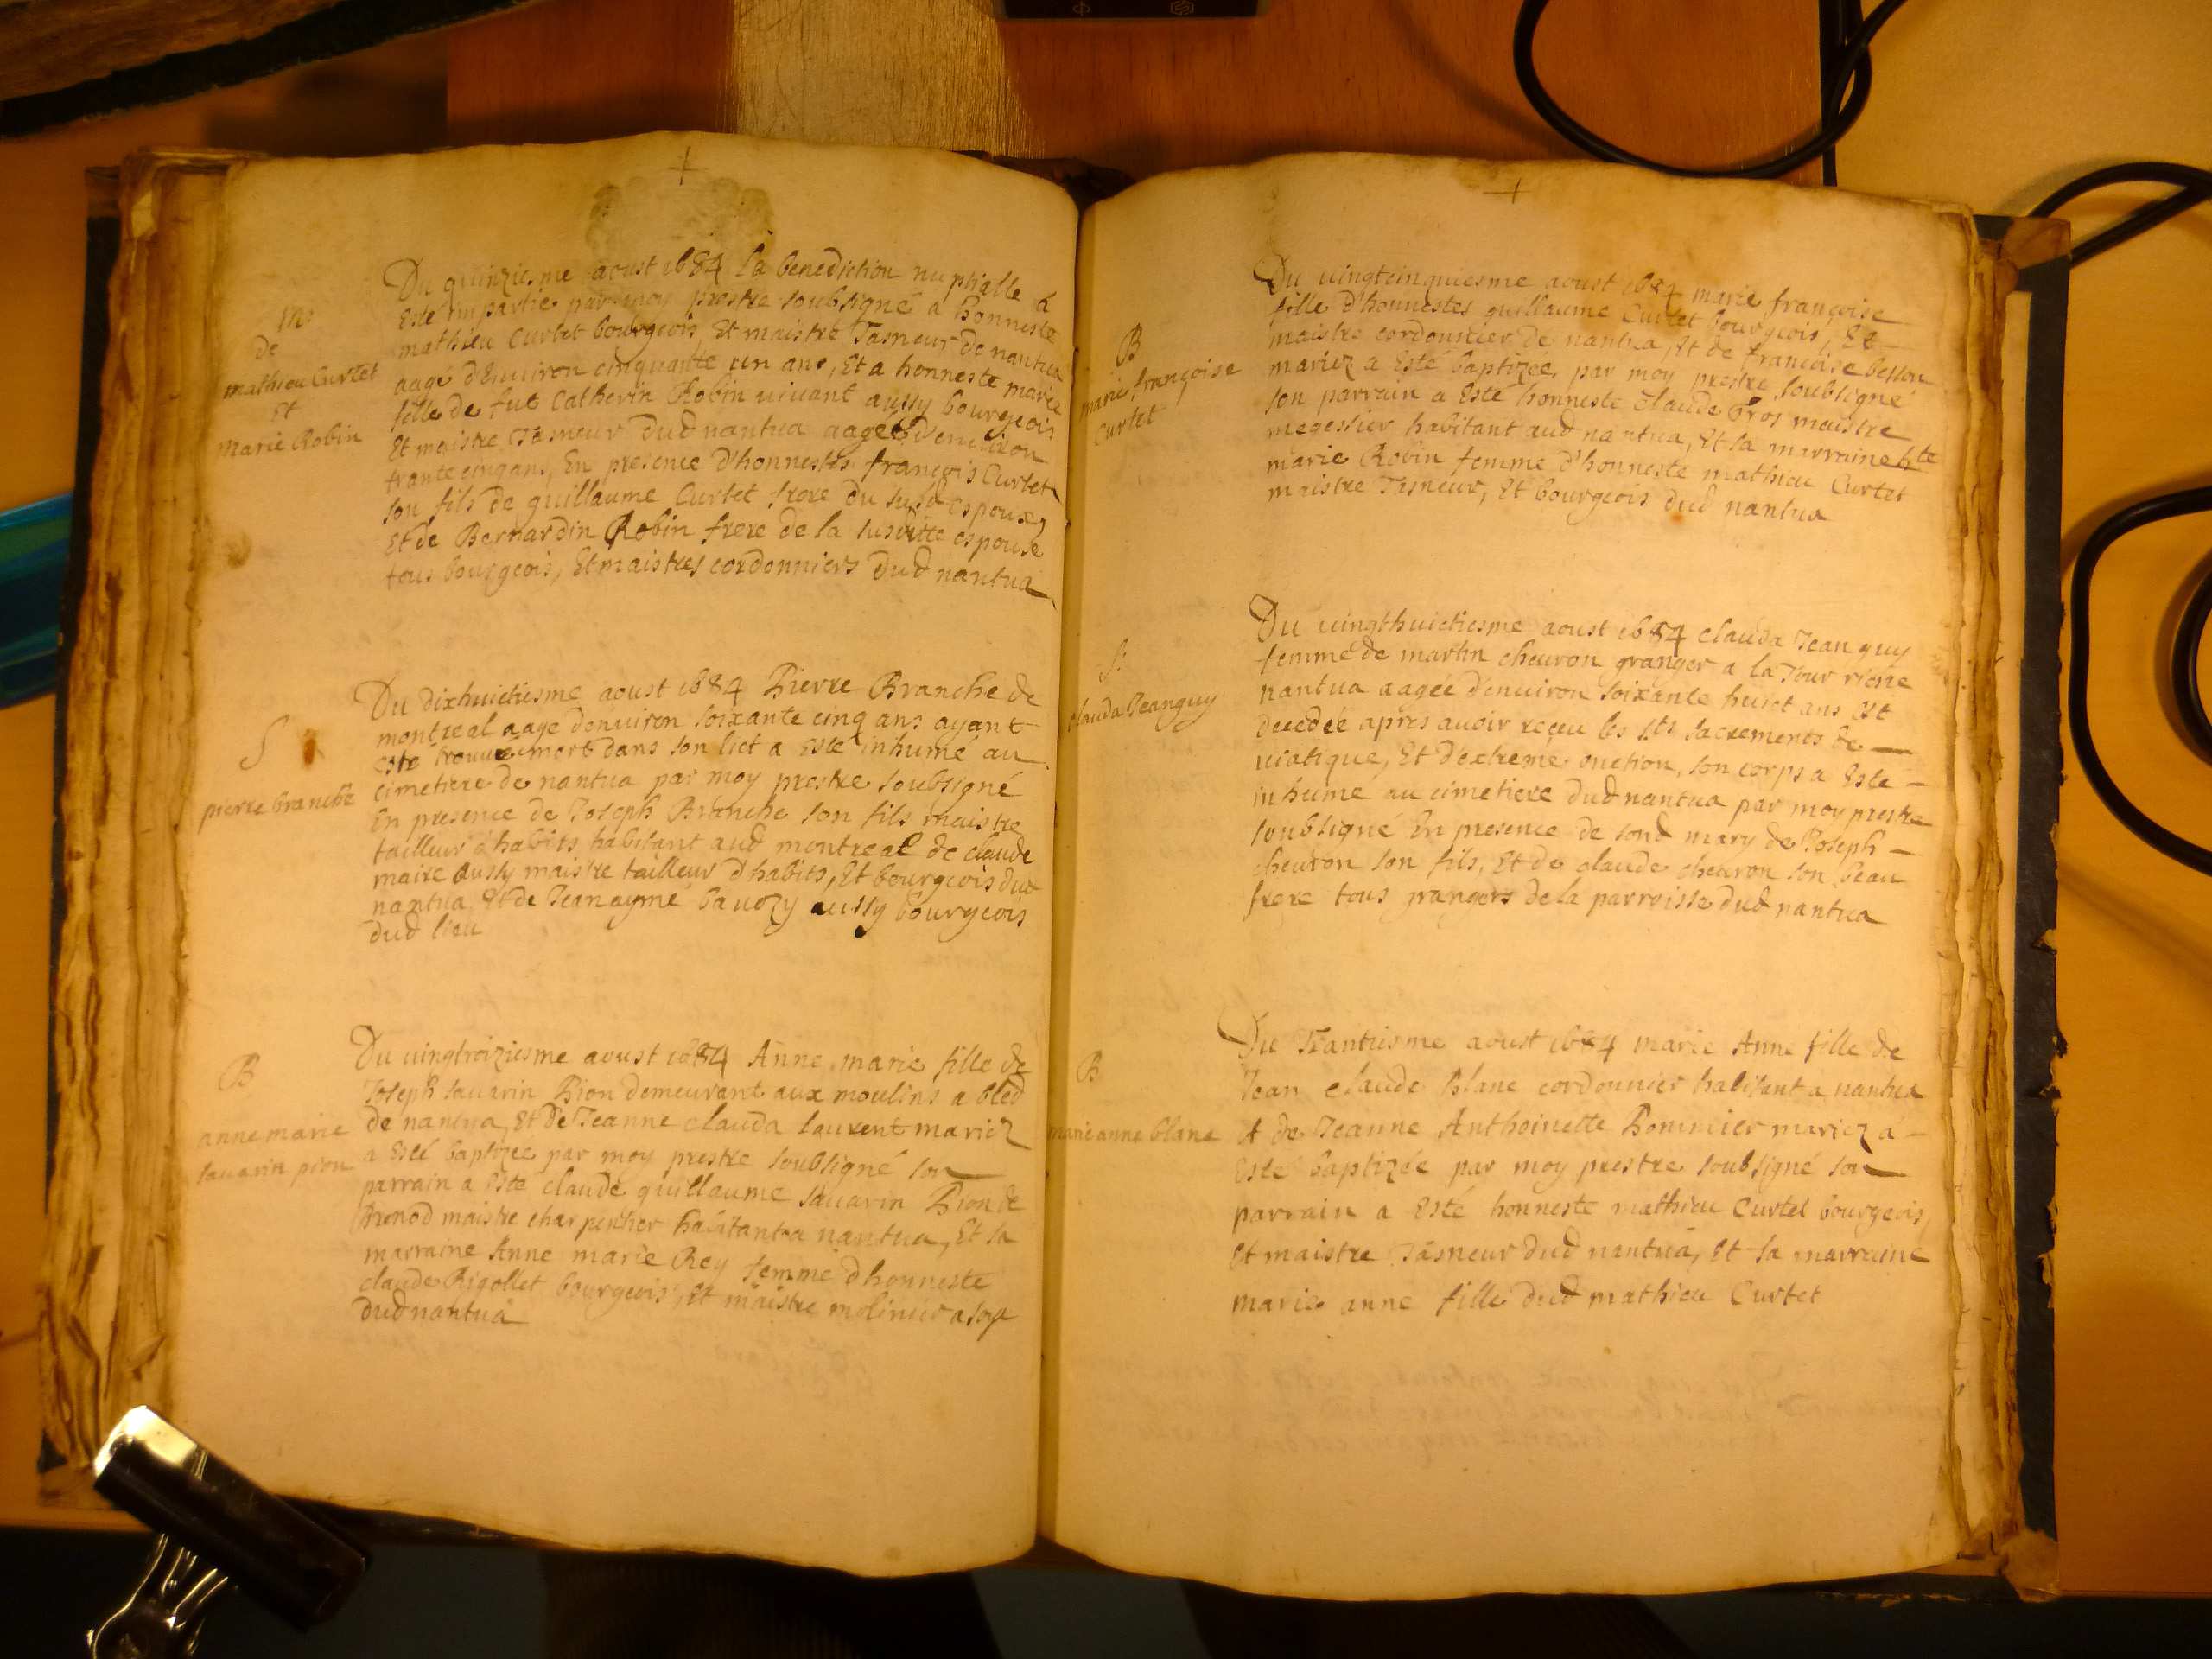 +
M:
de
mathieu Curtet
Et
Marie Robin
Du quinziesme aoust 1684 la benediction nuptialle a
Esté impartie par moy prestre soubsigné a honneste
mathieu Curtet bourgeois, Et maistre Tasneur de nantua
aagé d'Enuiron cinquante un ans, Et a honneste marie
fille de fut Catherin Robin uiuant aussy bourgeois
Et maistre Tasneur dud nantua aagée d'enuiron
trante cinq ans, En presence d'honnestes françois Curtet
son fils de guillaume Curtet frere du susd espoux,
Et de Bernardin Robin frere de la susditte espouse
tous bourgeois, Et maistres cordonniers dud nantua
S
pierre branche
Du dixhuictiesme aoust 1684 Pierre Branche de
montreal aage denuiron soixante cinq ans ayant
esté trouué mort dans son lict a esté inhumé au
cimetiere de nantua par moy prestre soubsigné
En presence de Joseph Branche son fils maistre
tailleur d'habits habitant aud montreal de claude
maire aussy maistre tailleur d'habits, Et bourgeois dud
nantua Et de Jean aymé bauozy aussy bourgeois
dud lieu
B
anne marie
sauarin pion
Du uingtroiziesme aoust 1684 Anne marie fille de
Joseph sauarin Pion demeurant aux moulins a bled
de nantua, Et de Jeanne clauda laurent mariez
a Esté baptizée par moy prestre soubsigné son
parrain a Esté claude guillaume sauarin Pion de
brenod maistre charpentier habitant a nantua, Et sa
marraine Anne marie Rey femme d'honneste
claude Rigollet bourgeois, Et maistre molinier a soye
dud nantua
+
B
marie françoise
Curtet
Du uingtcinquiesme aoust 1684 marie françoise
fille d'honnestes guillaume Curtet bourgeois, Et
maistre cordonnier de nantua, Et de françoise besson
mariez a Esté baptizée par moy prestre soubsigné
son parrain a Esté honneste claude Gros maistre
megessier habitant aud nantua, Et sa marraine hte
marie Robin femme d'honneste mathieu Curtet
maistre Tasneur, Et bourgeois dud nantua
S:
clauda Jeanguy
Du uingthuictiesme aoust 1684 clauda Jean guy
femme de martin cheuron granger a la Tour riere
nantua aagée d'enuiron soixante huict ans Est
decedée apres auoir reçeu les sts sacrements de
uiatique, Et d'extreme onction, son corps a Esté
inhume au cimetiere dud nantua par moy prestre
soubsigné En presence de sond mary de Joseph
cheuron son fils, Et de claude cheuron son beau
frere tous grangers de la parroisse dud nantua
B
marie anne blanc
Du Trantiesme aoust 1684 marie Anne fille de
Jean claude blanc cordonnier habitant a nantua
Et de Jeanne Anthoinette Bommier mariez a
Esté baptizée par moy prestre soubsigné son
parrain a Esté honneste mathieu Curtet bourgeois,
Et maistre Tasneur dud nantua, Et sa marraine
marie anne fille dud mathieu Curtet